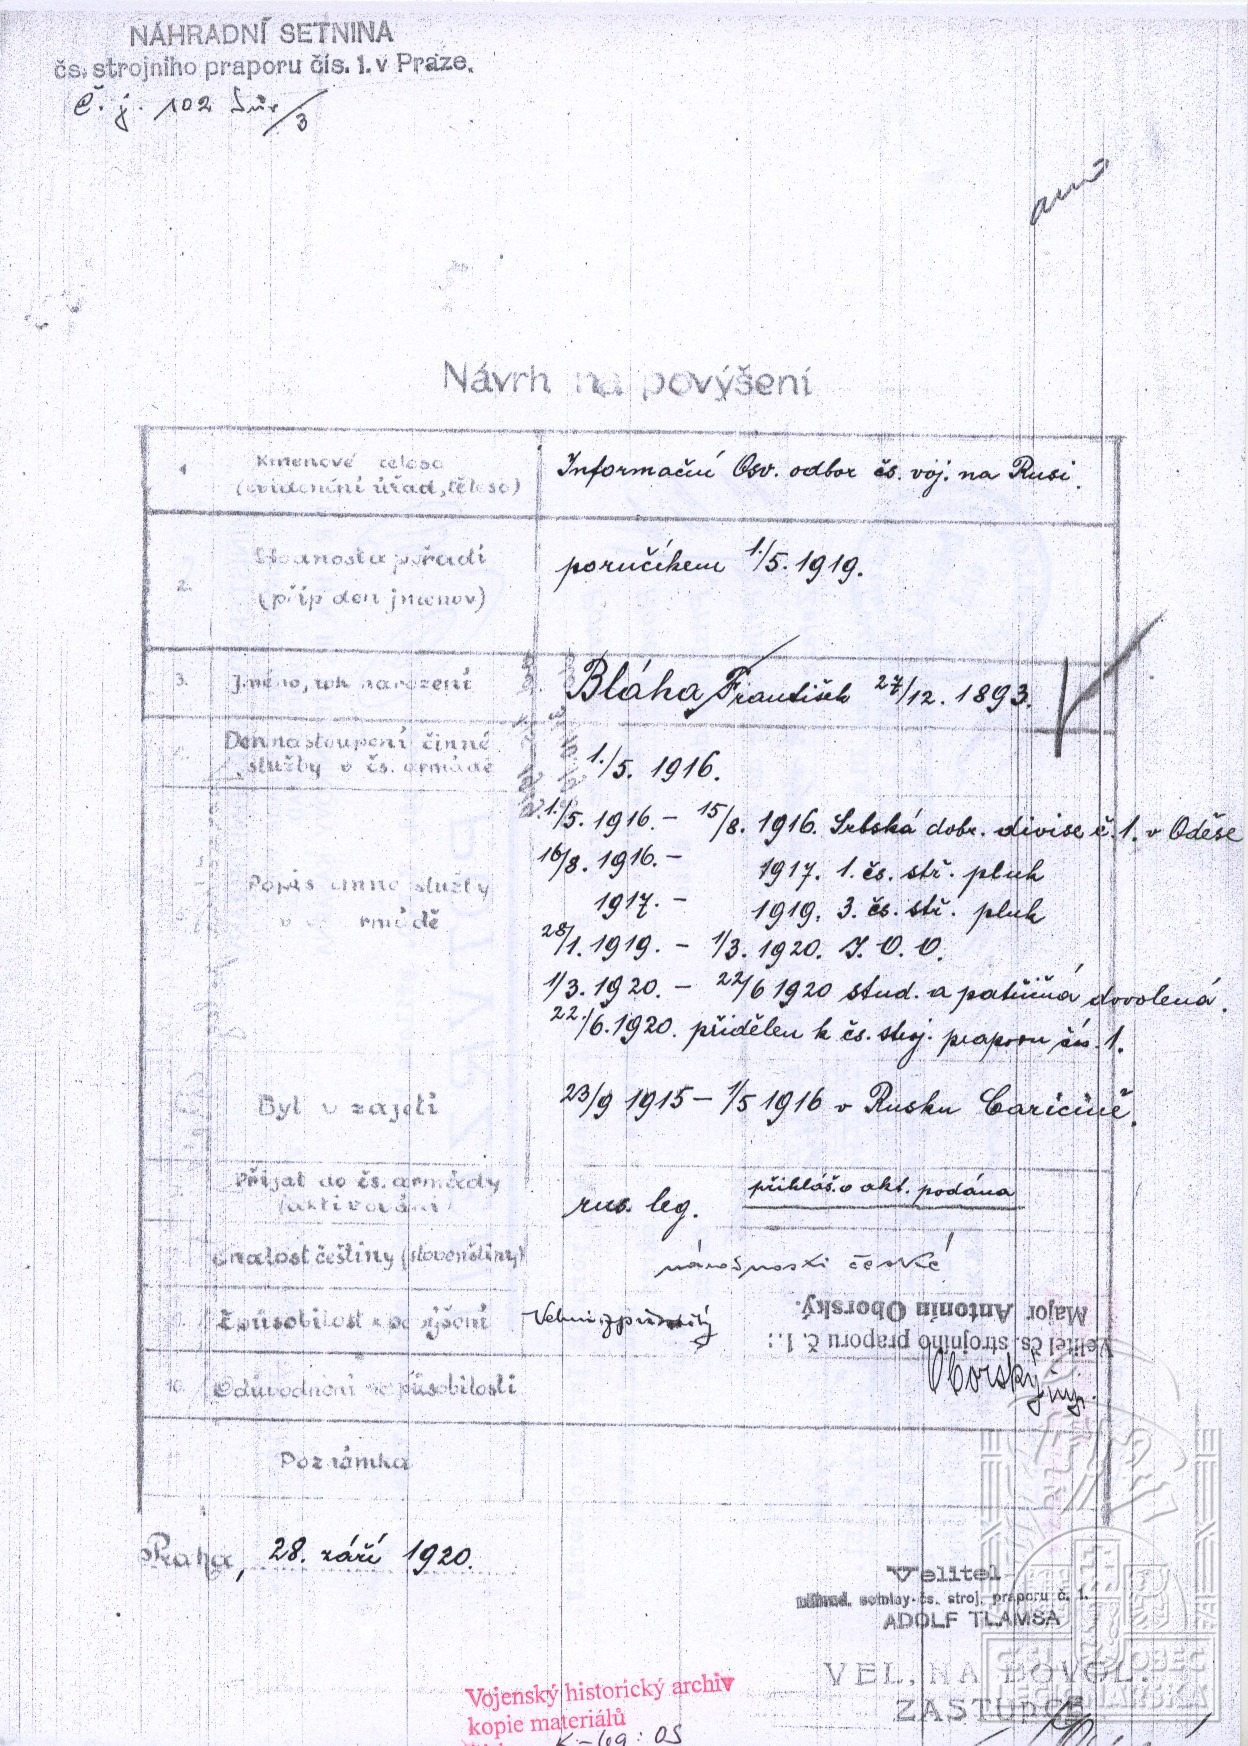 NÁHRADNÍ SETNINA
čs. strojního praporu čís. 1. v Praze.
Č. j. 102 /3
Návrh na povýšení
1. Kmenové těleso Informační Osv. odbor čs. voj. na Rusi.
(evidenční úřad, těleso)
2. Hodnost a pořadí poručíkem 1./5. 1919.
(příp den jmenov)
3. Jméno, rok narození Bláha František 27/12. 1893.
Den nastoupení činné
služby v čs. armádě 1./5. 1916.
1./5. 1916. – 15/8. 1916. Srbská dobr. divise č. 1. v Oděse
16/8. 1916. – 1917. 1. čs. stř. pluk
Popis činné služby
v armádě
1917. – 1919. 3. čs. stř. pluk
28/1. 1919. – 1/3. 1920. I. O. O.
1/3. 1920. – 22/6 1920 stud. a dovolená.
22./6. 1920. přidělen k čs. stroj. praporu čís. 1.
Byl v zajetí 23/9 1915 – 1/5 1916 v Rusku Caricině.
Přijat do čs. armády
(aktivování) rus. leg. přihláš. o akt. podána
Znalost češtiny (slovenštiny) národnosti české
Způsobilost k povýšení Velmi způsobilý
Major Antonín Oborský.
Velitel čs. strojního praporu č. 1.:
Oborský
10. Odůvodnění nezpůsobilosti
Poznámka
Praha, 28. září 1920.
Velitel
náhrad. setniny čs. stroj. praporu č. 1.
ADOLF TLAMSA
VEL. NA DOVOL.
ZASTUPCE
ČS OBEC
LEGIONÁŘSKÁ
Vojenský historický archiv
kopie materiálů
K-leg: OS